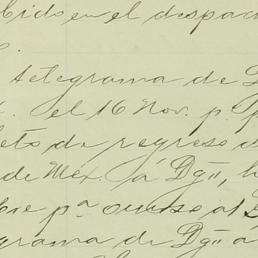 bido en el despac
telegrama de D
el 16 Nov. p. p
eto de regreso
de Méx. á Dgo, h
bre pa
grama de Dgo a